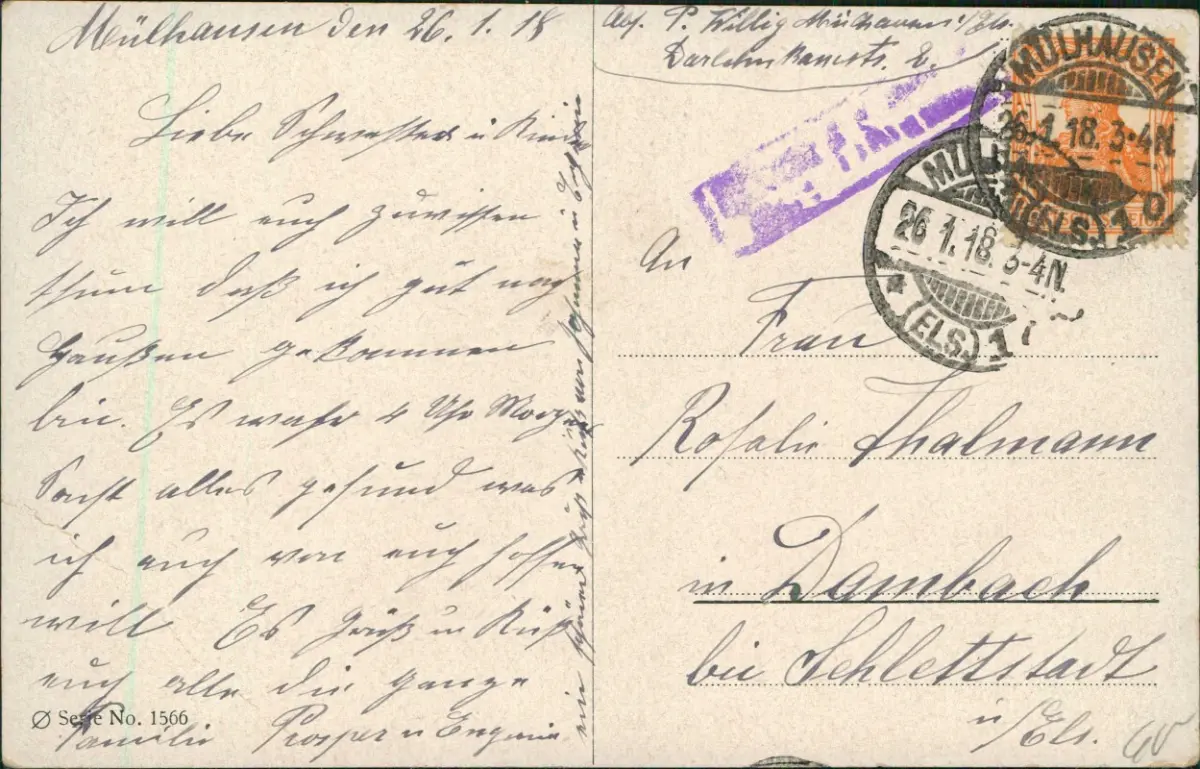 Mülhausen den 26.1.18
Liebe Schwester u Kinder
Ich will euch zuwissen
thun daß ich gut nach
Haußen gekommen
bin. Es wahr 4 Uhr Morg.
Sonst alles gesund was
ich auch von euch hoffen
will Es grüß u Küß
euch alle die ganze
Familie Prosper u Eugenie
Serie No. 1566
Abs. P. Willig Mülhausen i/Els.
Darlehnskassestr. 2.
MÜLHAUSEN
26.1.18. 3-4N.
(ELS.) 1
MÜLHAUSEN
26.1.18. 3-4N.
(ELS.) 1
An
Frau
Rosalie Thalmann
in Dambach
bei Schlettstadt
i/Els.
60